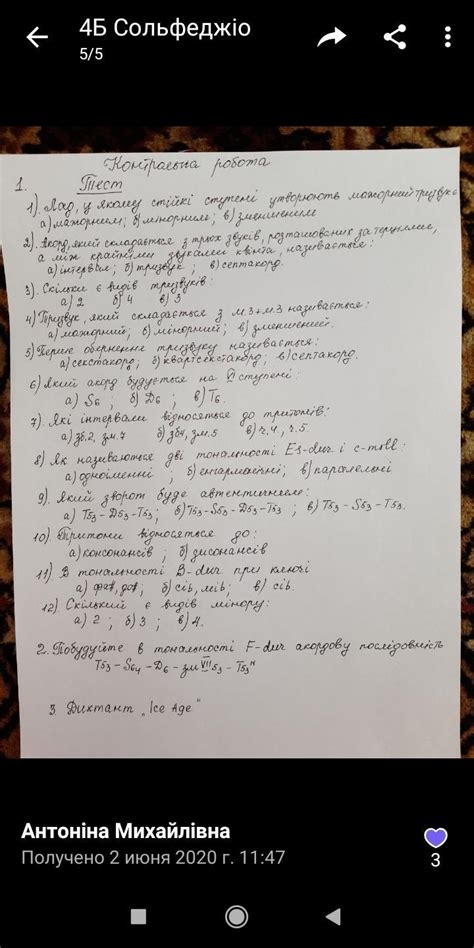 4Б Сольфеджіо
5/5
Контрольна робота
1. Тест
1). Лад, у якому стійкі ступені утворюють мажорний тризвук є
а) мажорним; б) мінорним; в) зменшеним
2). Акорд, який складається з трьох звуків, розташованих за терціями,
а між крайніми звуками квінта, називається:
а) інтервал; б) тризвук; в) септакорд.
3). Скільки є видів тризвуків:
а) 2 б) 4 в) 3
4) Тризвук, який складається з м.3+м.3 називається:
а) мажорний; б) мінорний; в) зменшений.
5) Перше обернення тризвуку називається:
а) секстакорд; б) квартсекстакорд; в) септакорд.
6) Який акорд будується на VI ступені:
а) S6; б) D6; в) T6.
7). Які інтервали відносяться до тритонів:
а) зб.2, зм.7 б) зб4, зм.5 в) ч.4, ч.5
8) Як називаються дві тональності Es-dur і c-moll:
а) одноіменні; б) енгармонічні; в) паралельні
9). Який зворот буде автентичним:
а) T53-D53-T53; б) T53-S53-D53-T53; в) T53-S53-T53.
10). Тритони відносяться до:
а) консонансів б) дисонансів
11) В тональності B-dur при ключі
а) фа#, до#; б) сіb, міb; в) сіb.
12) Скільки є видів мінору:
а) 2; б) 3; в) 4.
2. Побудуйте в тональності F-dur акордову послідовність
T53-S64-D6-змVII53-T53н
3. Диктант „Ice Age"
Антоніна Михайлівна
Получено 2 июня 2020 г. 11:47
3